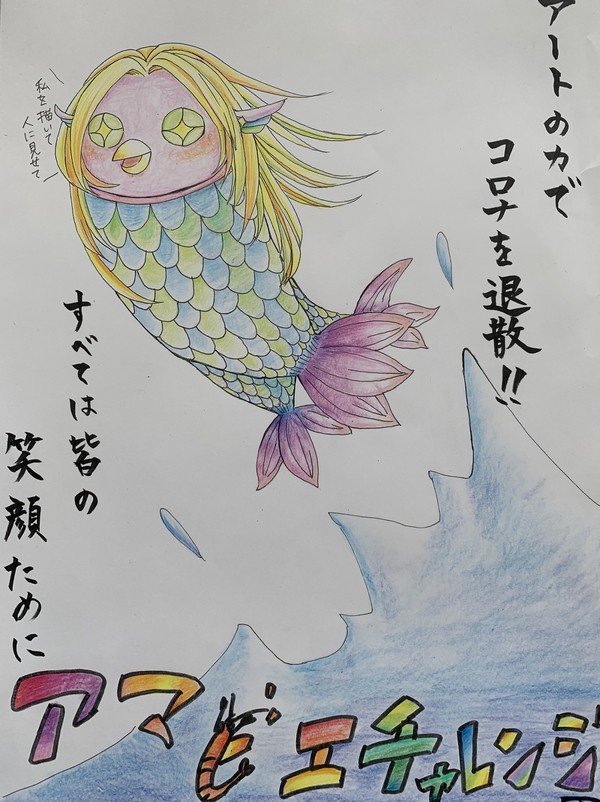 アートの力で
コロナを退散!!
私を描いて
人に見せて
すべては皆の
笑顔ために
アマビエチャレンジ